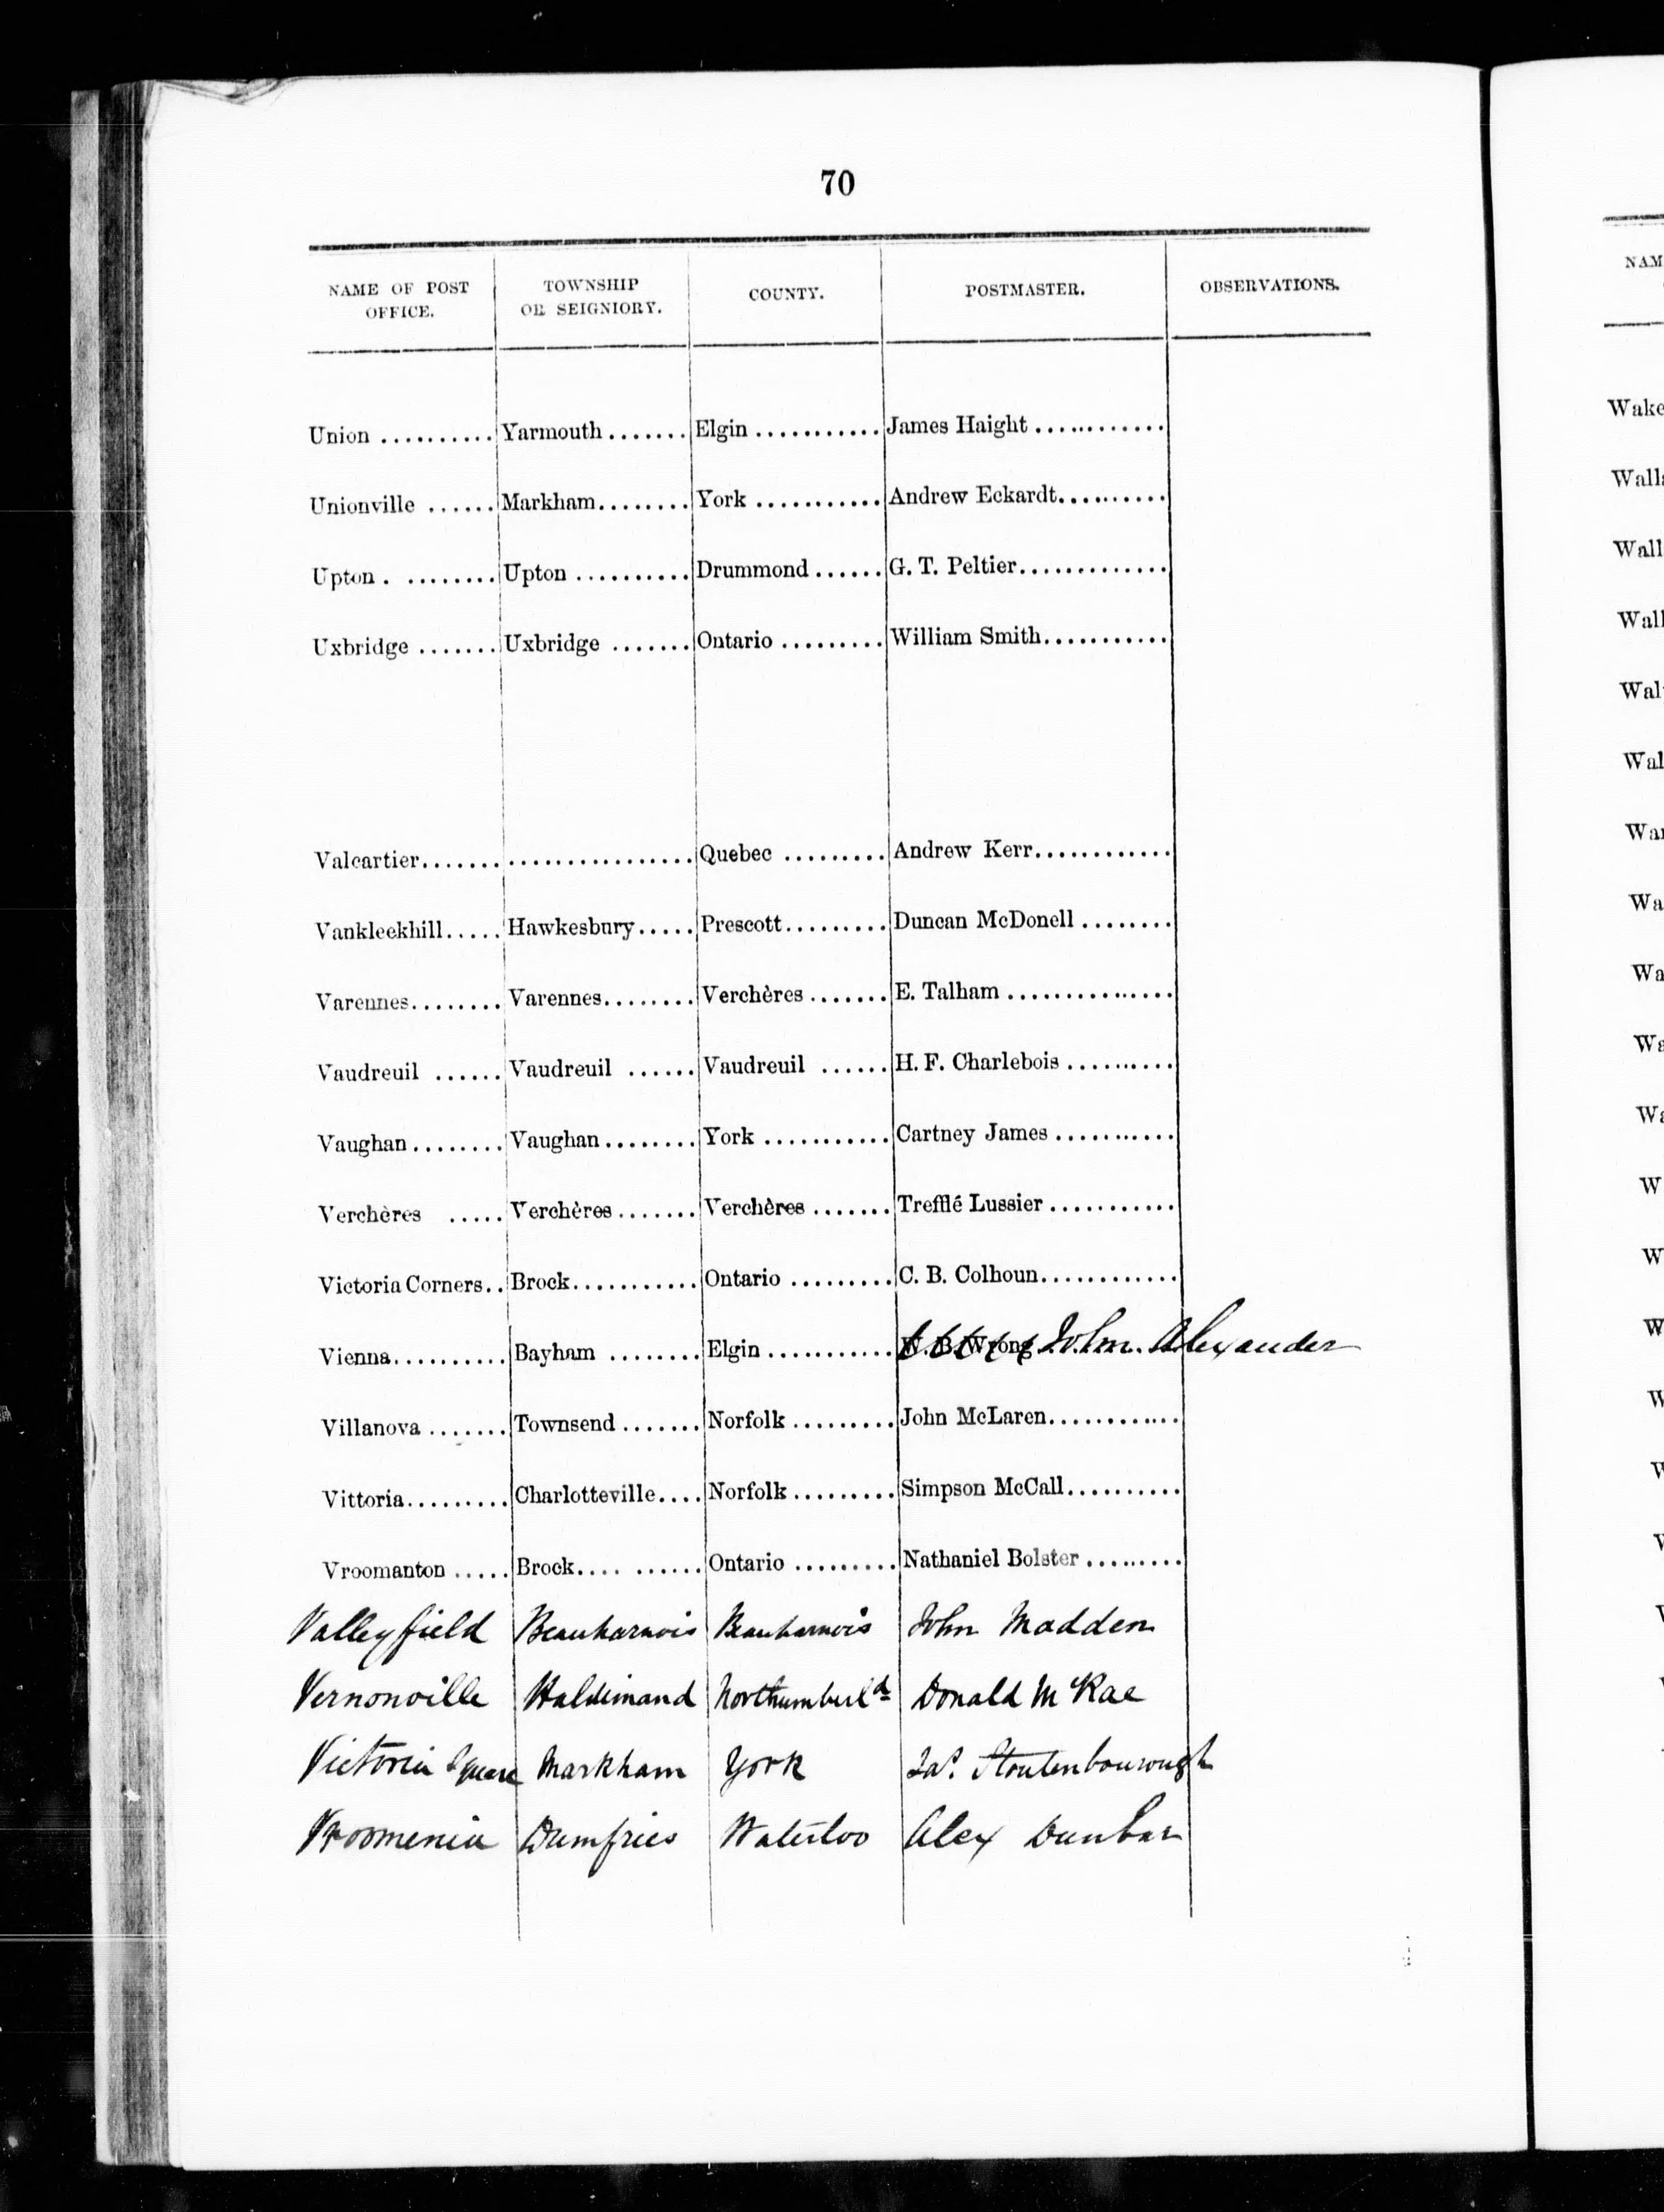 70
NAME OF POST OFFICE. TOWNSHIP OR SEIGNIORY. COUNTY. POSTMASTER. OBSERVATIONS.
Union .......... Yarmouth ....... Elgin ........... James Haight ............
Unionville ...... Markham ........ York ........... Andrew Eckardt..........
Upton . ........ Upton .......... Drummond ...... G. T. Peltier.............
Uxbridge ....... Uxbridge ....... Ontario ......... William Smith...........
Valcartier....... ................ Quebec ......... Andrew Kerr............
Vankleekhill..... Hawkesbury..... Prescott......... Duncan McDonell ........
Varennes........ Varennes........ Verchères ....... E. Talham ..............
Vaudreuil ...... Vaudreuil ...... Vaudreuil ...... H. F. Charlebois ..........
Vaughan ........ Vaughan ........ York ........... Cartney James ..........
Verchères ..... Verchères ....... Verchères ....... Trefflé Lussier ...........
Victoria Corners.. Brock........... Ontario ......... C. B. Colhoun............
Vienna.......... Bayham ........ Elgin ........... W. B. Wrong John Alexander
Villanova ....... Townsend ....... Norfolk ......... John McLaren............
Vittoria......... Charlotteville.... Norfolk ......... Simpson McCall..........
Vroomanton ..... Brock.... ...... Ontario ......... Nathaniel Bolster .........
Valleyfield Beauharnois Beauharnois John Madden
Vernonville Haldimand Northumberld Donald McRae
Victoria Square Markham York Jas. Stoutenbourough
Vroomenia Dumfries Waterloo Alex Dunbar
NAM
Wake
Walls
Wall
Wall
Wal
Wal
Wa
Wa
Wa
W
W
W
W
W